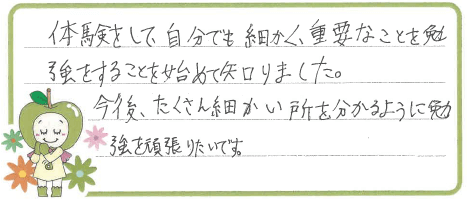 体験をして、自分でも細かく、重要なことを勉
強をすることを始めて知りました。
今後、たくさん細かい所を分かるように勉
強を頑張りたいです。